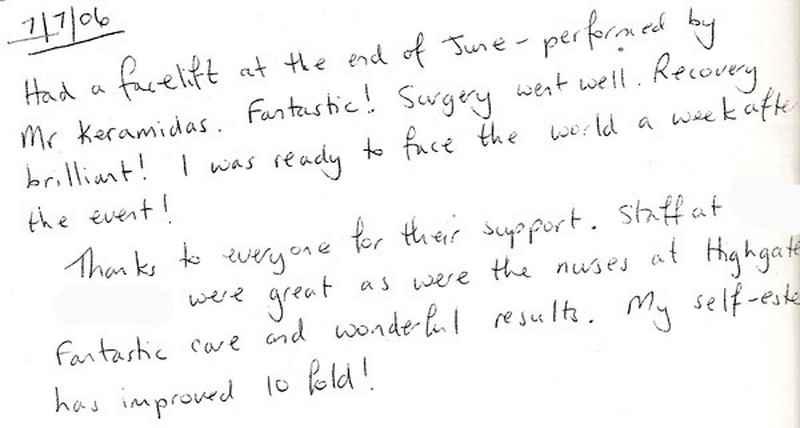 7/7/06
Had a facelift at the end of June - performed by
Mr Keramidas. Fantastic! Surgery went well. Recovery
brilliant! I was ready to face the world a week afte
the event!
Thanks to everyone for their support. Staff at
were great as were the nurses at Highgate
Fantastic care and wonderful results. My self-este
has improved 10 fold!